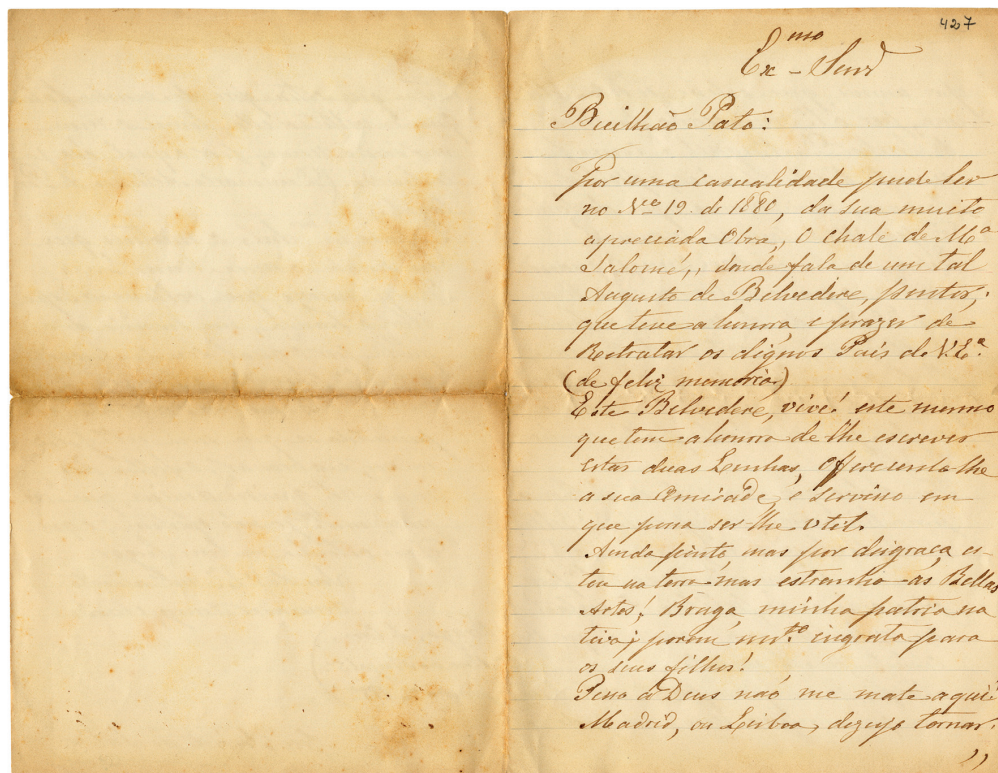 427
Ex^mo Senr
Bulhão Pato:
Por uma casualidade pude ler
no Nº 19. de 1880, da sua muito
apreciada Obra, O chalé de Mª
Salomé,, donde fala de um tal
Augusto de Belvedere, pintor,
que teve a honra, e prazer de
Retratar os dignos Pais de V.Eª.
(de feliz memoria.)
Este Belvedere, vive! este mesmo
que tem a honra de lhe escrever
estas duas Linhas, offerecendo lhe
a sua Amizade, e serviso em
que posa ser lhe util.
Ainda pinto, mas por disgraça, es-
tou na terra mas estranha as Bellas
Artes! Braga minha patria na
tiva; porem mtº. ingrata para
os seus filhos!
Peso a Deus naó me mate aqui
Madrid, ou Lisboa, dezejo tornar.
,,